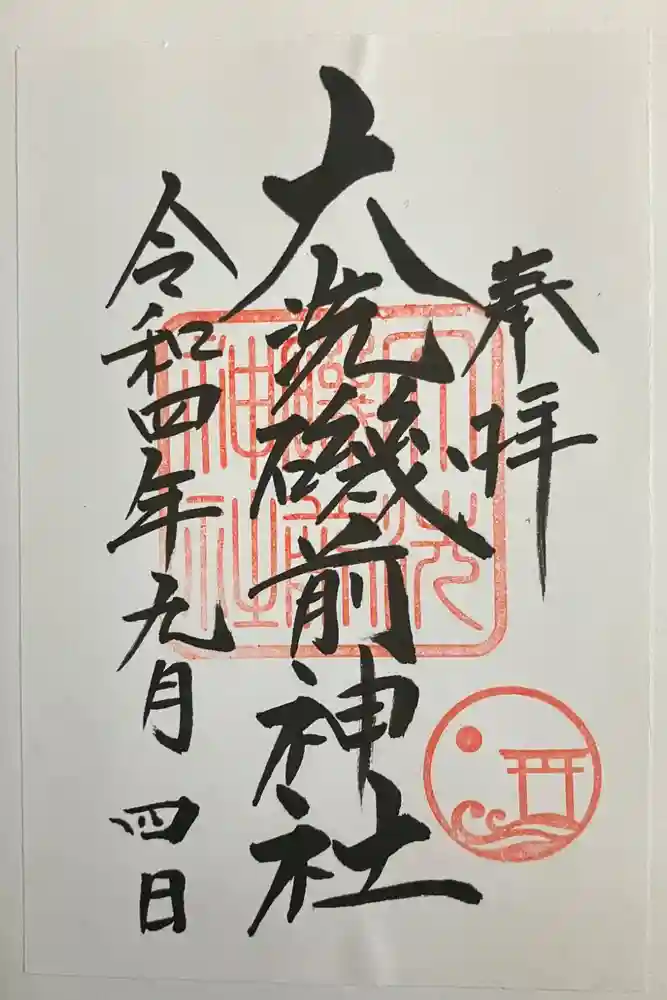 奉拝
大洗磯前神社
令和四年元月四日
大洗
磯前
神社